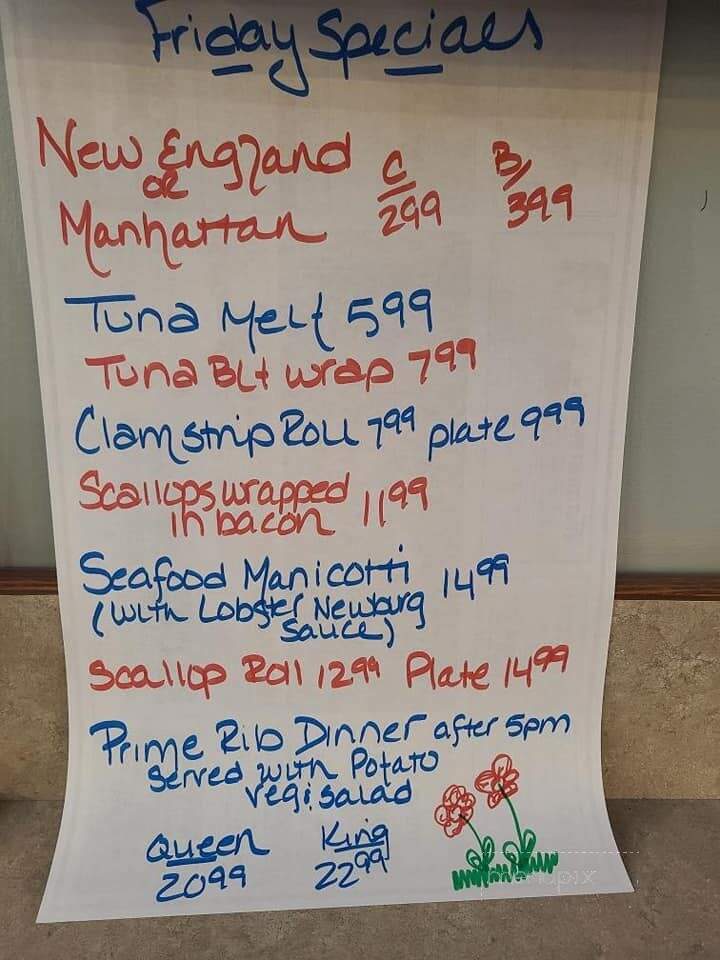 Friday Specials
New England
or
Manhattan
C 299
B/ 399
Tuna Melt 599
Tuna BLt wrap 799
Clam strip Roll 799 plate 999
Scallops wrapped
in bacon 1199
Seafood Manicotti 1499
(with Lobster Newburg
Sauce)
Scallop Roll 1299 Plate 1499
Prime Rib Dinner after 5pm
Served with Potato
vegi, salad
Queen King
2099 2299
menupix